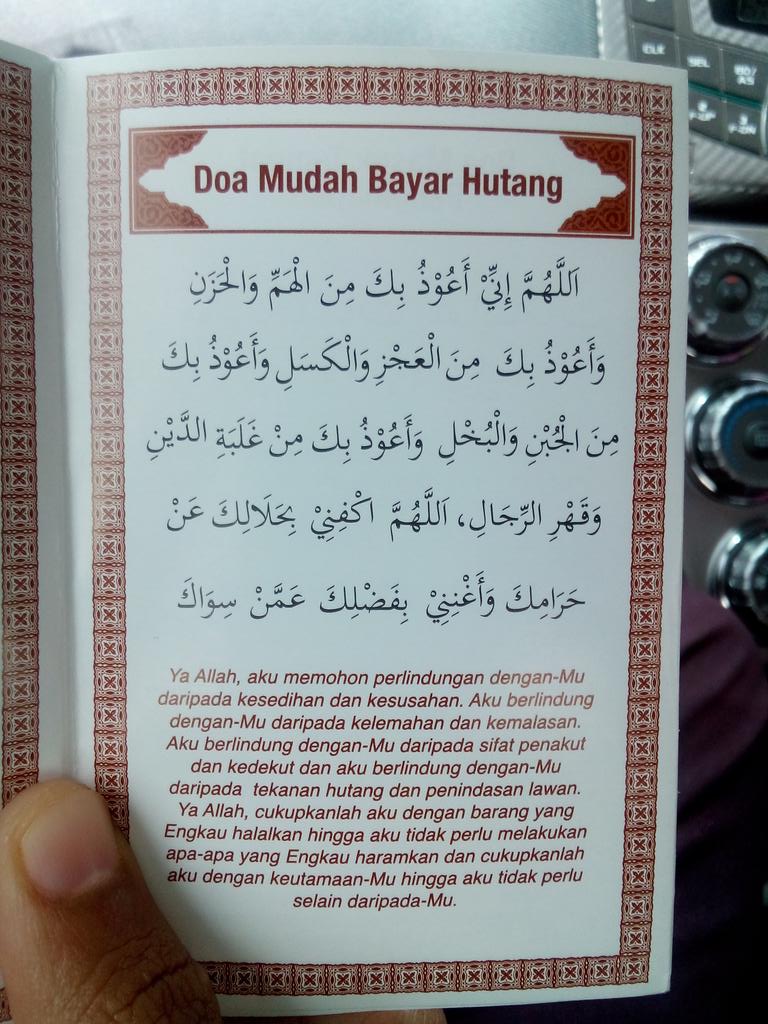 Doa Mudah Bayar Hutang
اَللَّهُمَّ إِنِّيْ أَعُوْذُ بِكَ مِنَ الْهَمِّ وَالْحَزَنِ
وَأَعُوْذُ بِكَ مِنَ الْعَجْزِ وَالْكَسَلِ وَأَعُوْذُ بِكَ
مِنَ الْجُبْنِ وَالْبُخْلِ وَأَعُوْذُ بِكَ مِنْ غَلَبَةِ الدَّيْنِ
وَقَهْرِ الرِّجَالِ، اَللَّهُمَّ اكْفِنِيْ بِحَلَالِكَ عَنْ
حَرَامِكَ وَأَغْنِنِيْ بِفَضْلِكَ عَمَّنْ سِوَاكَ
Ya Allah, aku memohon perlindungan dengan-Mu
daripada kesedihan dan kesusahan. Aku berlindung
dengan-Mu daripada kelemahan dan kemalasan.
Aku berlindung dengan-Mu daripada sifat penakut
dan kedekut dan aku berlindung dengan-Mu
daripada tekanan hutang dan penindasan lawan.
Ya Allah, cukupkanlah aku dengan barang yang
Engkau halalkan hingga aku tidak perlu melakukan
apa-apa yang Engkau haramkan dan cukupkanlah
aku dengan keutamaan-Mu hingga aku tidak perlu
selain daripada-Mu.